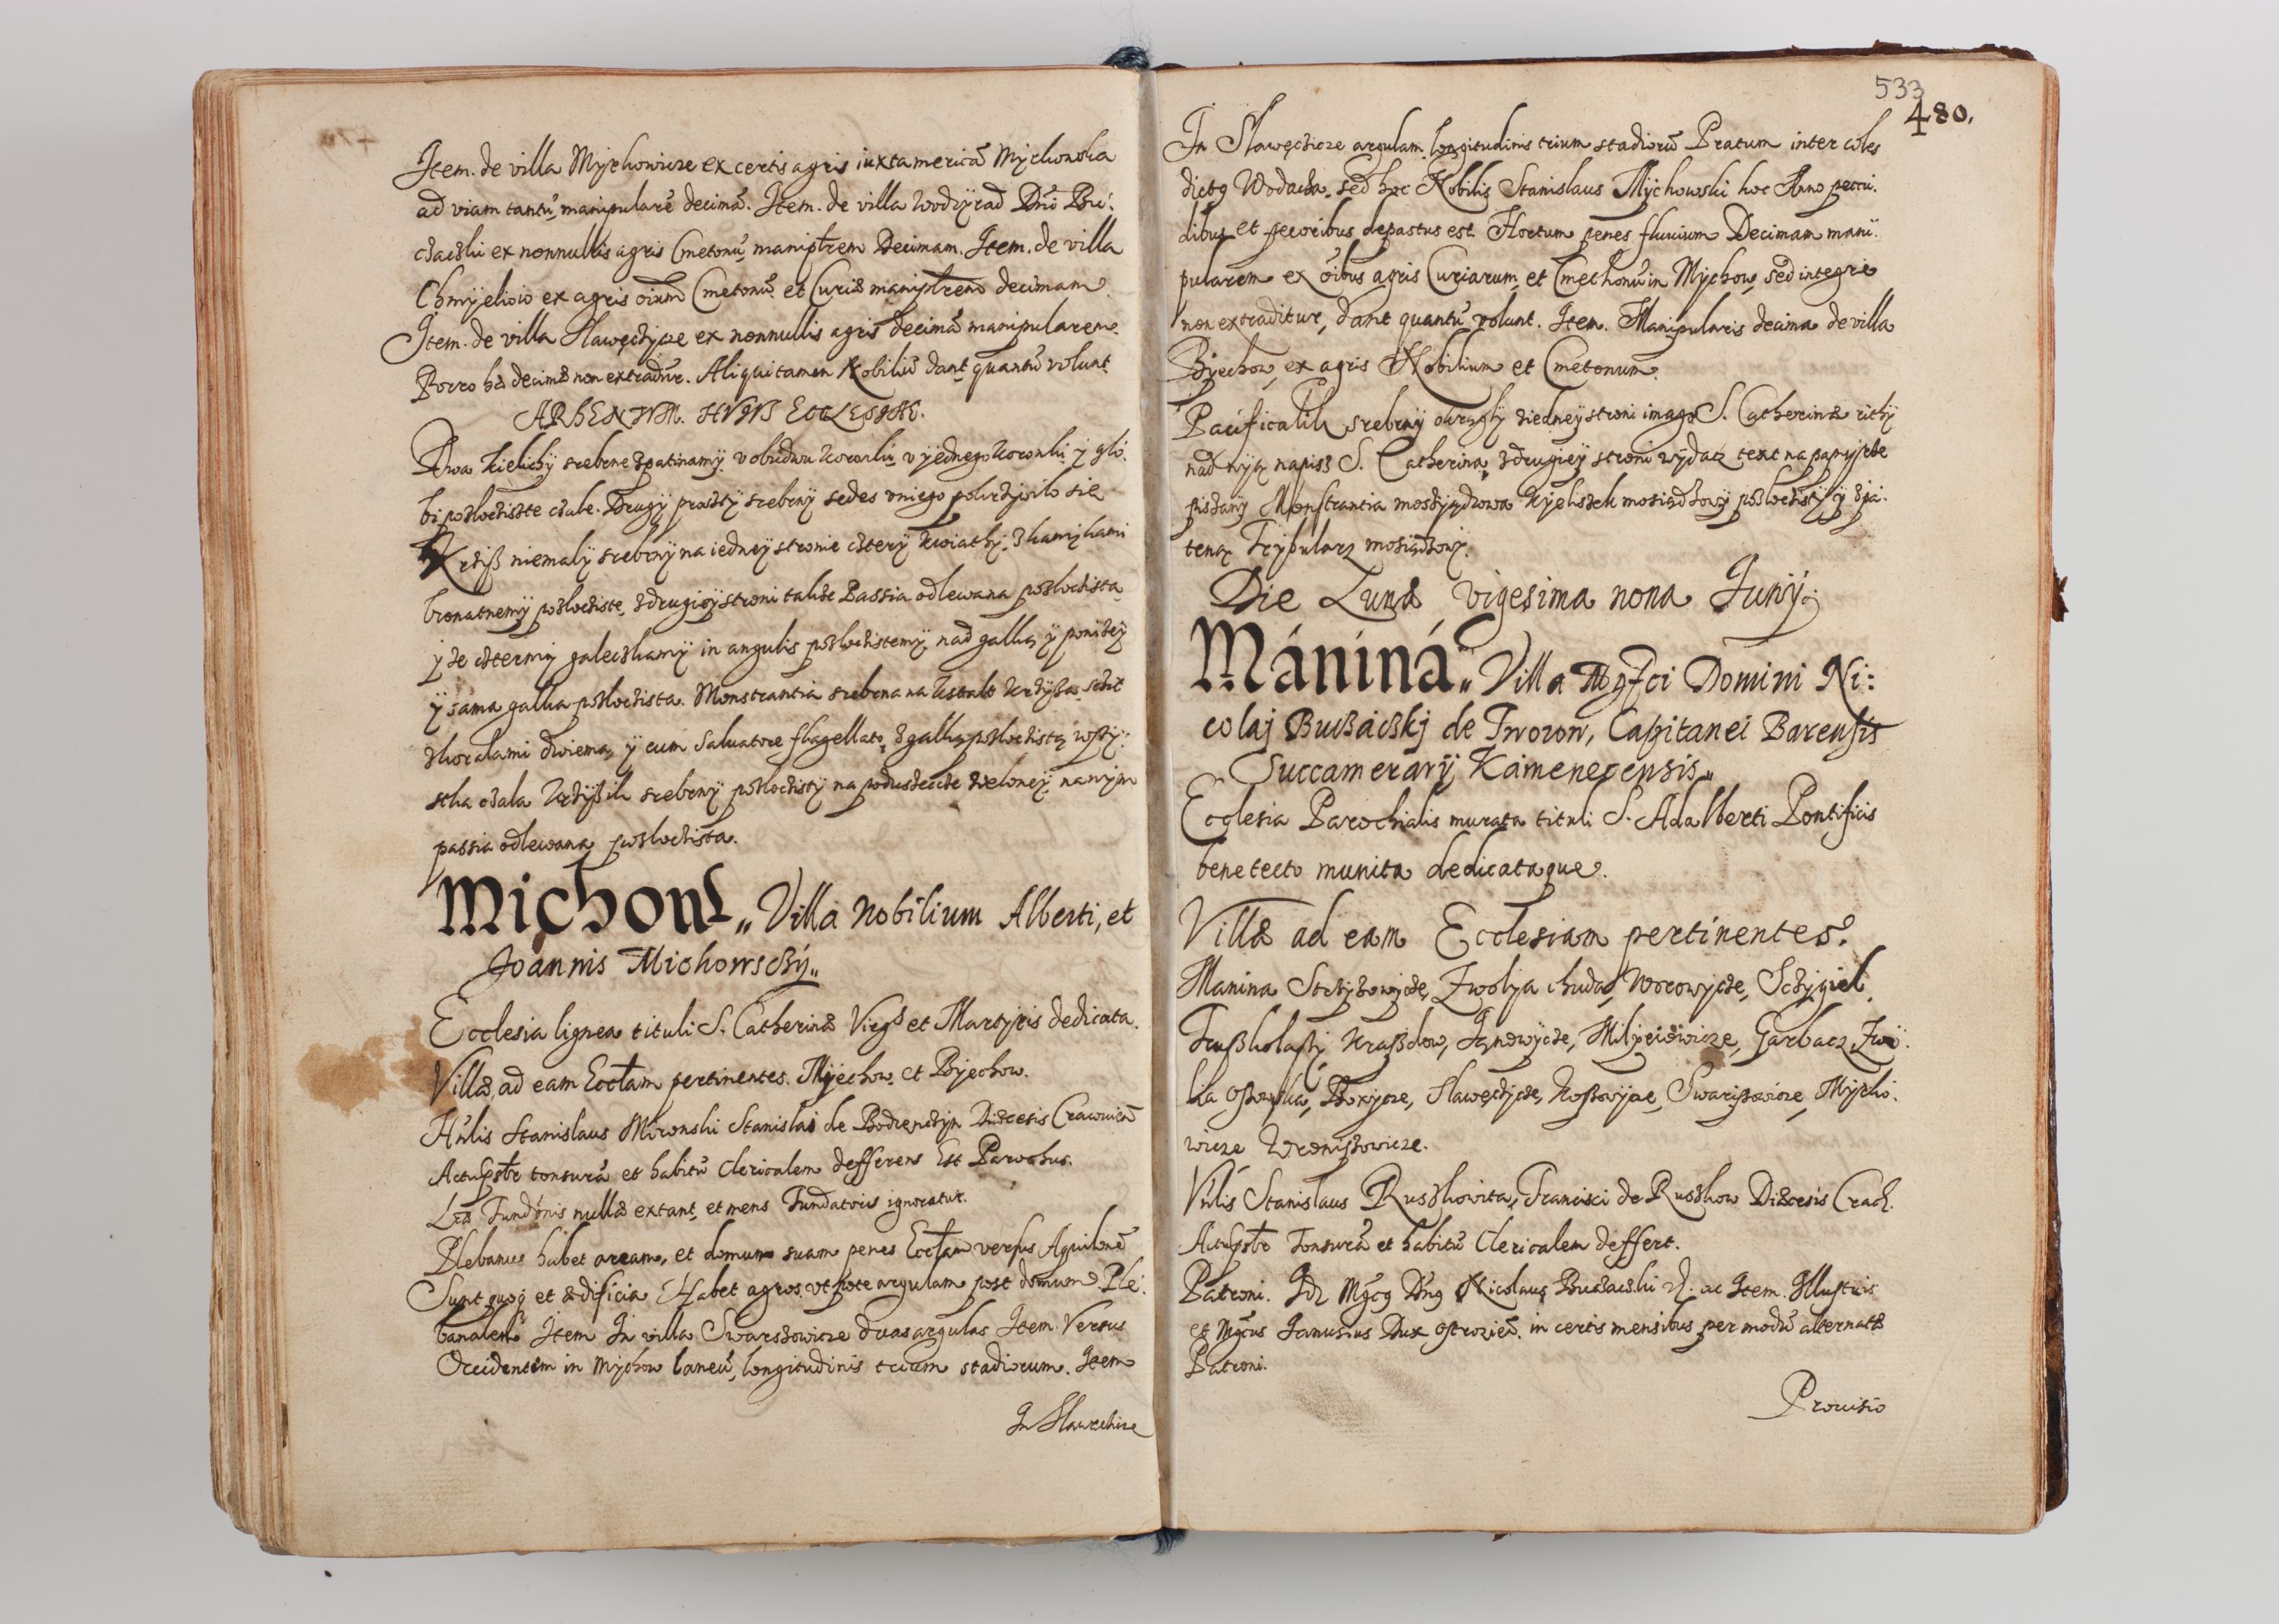 Item. de villa Mychowicze ex certis agris iuxta mericā Mychowska
ad viam tantū manipularē decimā. Item. de villa Wodzÿrad Dnī Bu:
czaczki ex nonnullis agris Cmetonū maniplrem Decimam. Item. de villa
Chmyelio ex agris oium Cmetonū et Curiæ maniplrem decimam
Item. de villa Slawęczÿcze ex nonnullis agris decimā manipularem.
Porro hæ decimæ non extradūr. Aliqui tamen Nobiliū dant quantū volunt.
ARhENTVM. HVIVS ECCLESIÆ.
Dwa kielichÿ srebrne spatinamÿ v obudwu koronki v yednego koronki y glo:
bi pozloczistte czale. Drugÿ prosztÿ srebrnÿ sedes vniego
Krziß niemalÿ srebrnÿ na iedneÿ stronie czterÿ kwiathÿ skamÿkami
bronatnemÿ pozlocziste, zdrugieÿ stroni takze Passia odlewana pozloczista
y ze czterma galeczkamÿ in angulis pozloczistemÿ nad galką ÿ ponizeÿ
ÿ sama galka pozloczista. Monstrantia srebrna na ksztalt krzÿza
zkoralami dwiema, ÿ cum Saluatore flagellato, z galką pozloczistą wszÿ:
stka czala krzÿßik srebrnÿ pozloczistÿ na poduszczcze zieloneÿ na nÿm
passia odlewana pozloczista.
Michow „ Villa Nobilium Alberti, et
Joannis Michowsckÿ „
Ecclesia lignea tituli S. Catherinæ Virgs et Martyris dedicata.
Villæ ad eam Eccłam pertinentes. Mÿechow et Bÿechow.
Hnlis Stanislaus Mironski Stanislai de Bodzenczÿn Diæcesis Cracovien̄
Actu psbr tonsurā et habitū clericalem defferens Est Parochus.
Lræ Fundōnis nullæ extant, et mens Fundatoris ignoratur.
Plebanus habet aream, et domum suam penes Eccłam versus Aquilonē
Sunt quoq et ædificia Habet agros vt pote argulam post domum Ple:
banalem Item In villa Swarszowicze duas argulas Item. Versus
Occidentem in Mychow laneū, longitudinis trium stadiorum. Item
In Slawęczicze
533
480.
In Slawęczicze argulam longitudinis trium stadiorū Pratum inter coles
dictg Wodacza, sed hoc Nobilis Stanislaus Mÿchowski hoc Anno pecu:
dibus et pecoribus depastus est. Hortum penes fluuium Decimam mani:
pularem ex oibus agris Curiarum et Cmethonū in Mÿchow, sed integre
non extraditur, dant quantū volunt. Item. Manipularis decima de villa
Bÿechow, ex agris Nobilium et Cmetonum.
Pacificalik srebrnÿ okrąglÿ ziedneÿ stroni imago S. Catherinæ rithÿ
nad nÿą napisz S. Catherina, zdrugieÿ stroni wÿdacz text na papÿrze
piszanÿ Monstrantia moszÿądzowa Kÿeliszek mosiądzowÿ pozloczistÿ ÿ zpa:
teną Trybularz mosiądzowÿ.
Die Lunæ vigesima nona Junÿ.
Mánìná „ Villa Mgfci Domini Ni:
colaj Buczáczkj de Tworow, Capitanei Barensis
Succamerarÿ Kamenecensis „
Ecclesia Parochialis murata tituli S. Adalberti Pontificis
bene tecto munita dedicataque.
Villæ ad eam Ecclesiam pertinentes.
Manina Strzÿzowÿcze, Zwolya chuda, Worowÿcze, Sczÿgiel,
Trußkolaßÿ Kraßdow, Milyeiowicze, Garbacz, Zwo:
lka Oßowka, Boxÿcze, Slawęczÿcze, Koßowÿcze, Swarißowicze, Mÿcho:
wicze Wronißowicze.
Vnlis Stanislaus Ruszkowita, Francisci de Ruszkow Diæcesis Crac.
Actu psbr Tonsurā et habitū Clericalem deffert.
Patroni. Idz Mgcg Dng Nicolaus Buczaczki ac Item. Illustris
et Mgcus Janusius Dux Ostrozień. in certis mensibus per modū alternatæ
Patroni.
Prouisio